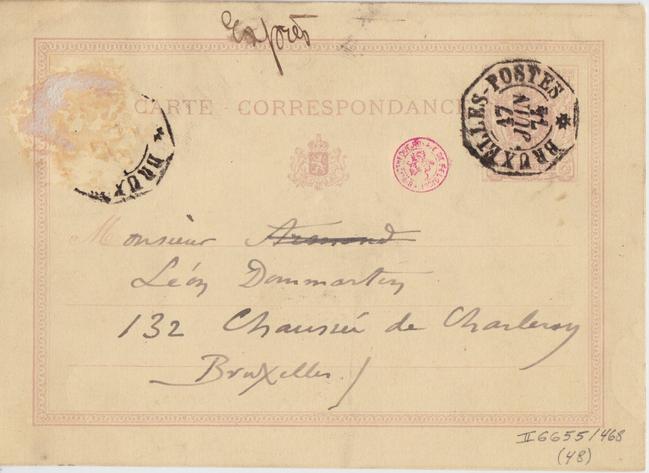 Exprès
CARTE-CORRESPONDANCE
BRUXELLES-POSTES
17
JUIN
74
BRUX
Monsieur Armond
Léon Dommartin
132 Chaussée de Charleroy
Bruxelles
II 6655/468
(48)